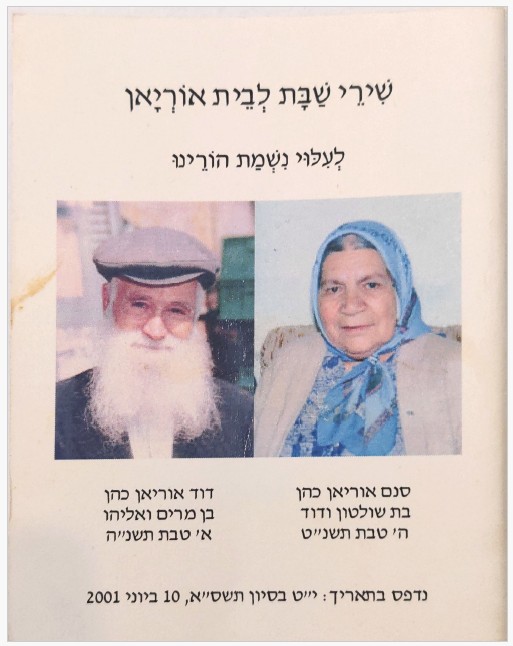 שִׁירֵי שַׁבָּת לְבֵית אוֹרְיָאן
לְעִלּוּי נִשְׁמַת הוֹרֵינוּ
סנם אוריאן כהן
בת שולטון ודוד
ה׳ טבת תשנ״ט
דוד אוריאן כהן
בן מרים ואליהו
א׳ טבת תשנ״ה
נדפס בתאריך: י״ט בסיון תשס״א, 10 ביוני 2001